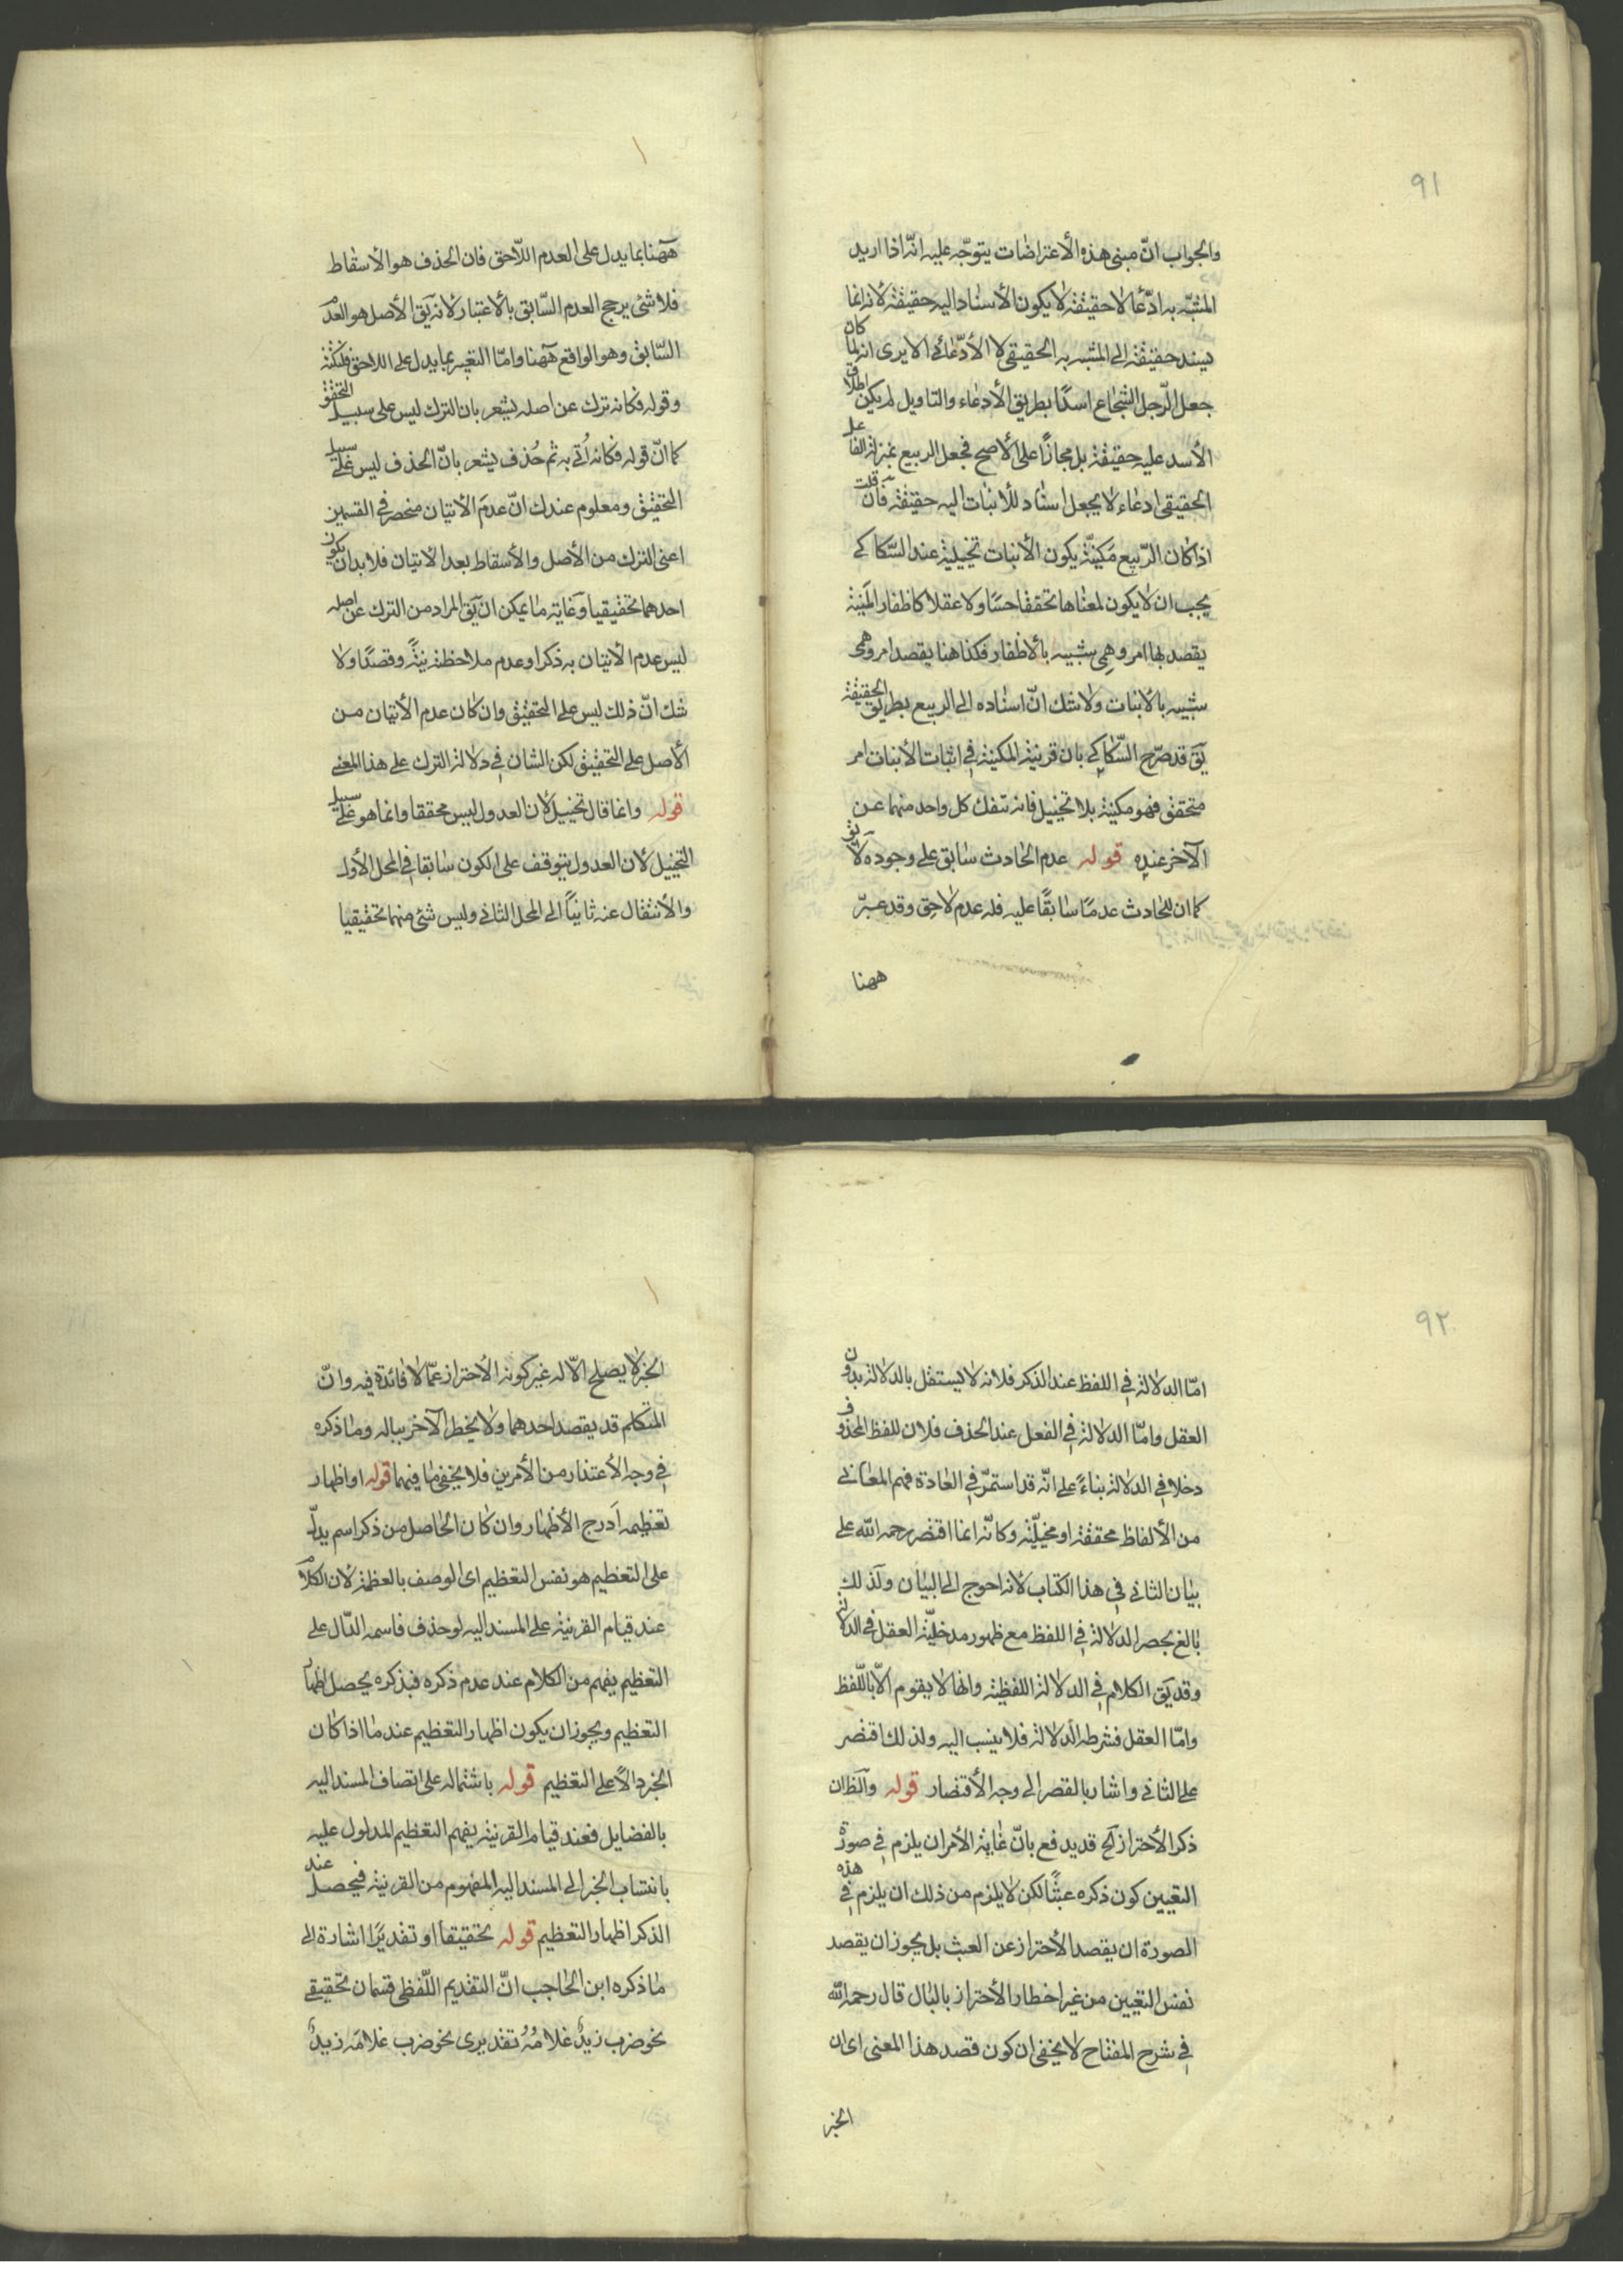 ٩١
والجواب انّ مبنى هذه الأعتراضات يتوجّه عليه انّه اذا اريد
المشبّه به ادّعا لا حقيقة لا يكون الأسناد اليه حقيقة لانه انما
يسند حقيقة الى المشبه به الحقيقى لا الأدّعائى الا يرى انه لما كان
جعل الرّجل الشجاع اسدًا بطريق الأدعاء والتاويل لم يكن اطلاق
الأسد عليه حقيقة بل مجازًا على الأصح فجعل الربيع بمنزلة الفاعل
الحقيقى ادعاء لا يجعل اسناد للأنبات اليه حقيقة فآن قلت
اذا كان الرّبيع مكنيّة يكون الأنبات تخييلية عند السّكاكى
يجب ان لا يكون لمعناها تحققا حسّا ولا عقلا كاظفار المنية
يقصد بها امر وهمى شبيه بالأظفار فكذا هنا يقصد امر وهمى
شبيه بالأنبات ولا شك انّ اسناده الى الربيع بطريق الحقيقة
يق قد صرّح السّكاكى بان قرينة المكنية فى اثبات الأنبات امر
متحقق فهو مكنية بلا تخييل فانه تنفك كل واحد منهما عن
الآخر عنده قوله عدم الحادث سابق على وجوده لا يق
كما ان للحادث عدمًا سابقًا عليه فله عدم لاحق وقد عبّر
ههنا
ههنا بما يدل على العدم اللّاحق فان الحذف هو الأسقاط
فلا شئ يرجح العدم السّابق بالأعتبار لانه يق الأصل هو العدم
السّابق وهو الواقع ههنا وامّا التعبير بما يدل على اللاحق فلنكتة
وقوله فكانه ترك عن اصله يشعر بان الترك ليس على سبيل التحقق
كما انّ قوله فكانه اُتى به ثم حُذف يشعر بانّ الحذف ليس على سبيل
التحقيق ومعلوم عندك انّ عدم الأتيان منحصر فى القسمين
اعنى الترك من الأصل والأسقاط بعد الاتيان فلا بد ان يكون
احدهما تحقيقيا وغاية ما يمكن ان يق المراد من الترك عن اصله
ليس عدم الأتيان به ذكرا وعدم ملاحظته نيّة وقصدًا ولا
شك انّ ذلك ليس على التحقيق وان كان عدم الأتيان من
الأصل على التحقيق لكن الشان فى دلالة الترك على هذا المعنى
قوله وانما قال تخييل لان العدول ليس محققا وانما هو على سبيل
التخييل لأن العدول يتوقف على الكون سابقا فى المحل الأول
والأنتقال عنه ثانياً الى المحل الثانى وليس شئ منهما تحقيقيا
٩٢
امّا الدلالة فى اللفظ عند الذكر فلانه لا يستقل بالدلالة بدون
العقل وامّا الدلالة فى الفعل عند الحذف فلان للفظ المحذوف
دخلا فى الدلالة بناءً على انّه قد استمرّ فى العادة فهم المعانى
من الألفاظ محققة او مخيلّة وكانّه انما اقتصر رحمه الله على
بيان الثانى فى هذا الكتاب لانه احوج الى البيان ولذلك
بالغ بحصر الدلالة فى اللفظ مع ظهور مدخليّة العقل فى الدلالة
وقد يق الكلام فى الدلالة اللفظية وانها لا يقوم الّا باللّفظ
وامّا العقل فشرط الدلالة فلا ينسب اليه ولذلك اقتصر
على الثانى واشار بالقصر الى وجه الأقتصار قوله والظ ان
ذكر الأحتراز الخ قد يدفع بانّ غاية الأمر ان يلزم فى صورة
التعيين كون ذكره عبثًا لكن لا يلزم من ذلك ان يلزم فى هذه
الصورة ان يقصد الأحتراز عن العبث بل يجوز ان يقصد
نفس التعيين من غير اخطار الأحتراز بالبال قال رحمه الله
فى شرح المفتاح لا يخفى ان كون قصد هذا المعنى اى ان
الخبر
الخبر لا يصلح الّا له غير كونه الأحتراز عمّا لا فائدة فيه وانّ
المتكلم قد يقصد احدهما ولا يخطر الآخر بباله وما ذكره
فى وجه الأعتذار من الأمرين فلا يخفى ما فيهما قوله او اظهار
تعظيمه ادرج الأظهار وان كان الحاصل من ذكر اسم يدلّ
على التعظيم هو نفس التعظيم اى الوصف بالعظمة لان الكلام
عند قيام القرينة على المسند اليه لو حذف فاسمه الدّال على
التعظيم يفهم من الكلام عند عدم ذكره فبذكره يحصل اظهار
التعظيم ويجوز ان يكون اظهار التعظيم عند ما اذا كان
الخبر دالّا على التعظيم قوله باشتماله على اتصاف المسند اليه
بالفضايل فعند قيام القرينة يفهم التعظيم المدلول عليه
بانتساب الخبر الى المسند اليه المفهوم من القرينة فيحصل عند
الذكر اظهار التعظيم قوله تحقيقا او تقديرًا اشارة الى
ما ذكره ابن الحاجب انّ التقديم اللّفظى قسمان تحقيقى
نحو ضرب زيدٌ غلامَهُ تقديرى نحو ضرب غلامَه زيدٌ